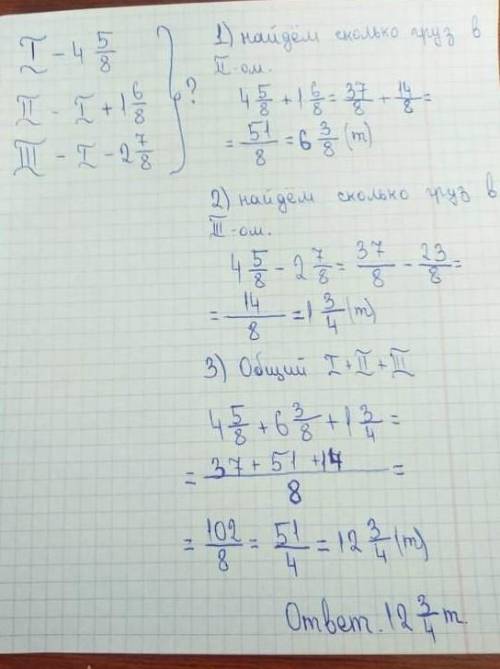 I - 4 5/8
II - I + 1 6/8
III - I - 2 7/8
?
1) найдём сколько груз в
II-ом.
4 5/8 + 1 6/8 = 37/8 + 14/8 =
= 51/8 = 6 3/8 (т)
2) найдём сколько груз в
III-ом.
4 5/8 - 2 7/8 = 37/8 - 23/8 =
= 14/8 = 1 3/4 (т)
3) Общий I + II + III
4 5/8 + 6 3/8 + 1 3/4 =
= (37 + 51 + 14)/8 =
= 102/8 = 51/4 = 12 3/4 (т)
Ответ. 12 3/4 т.